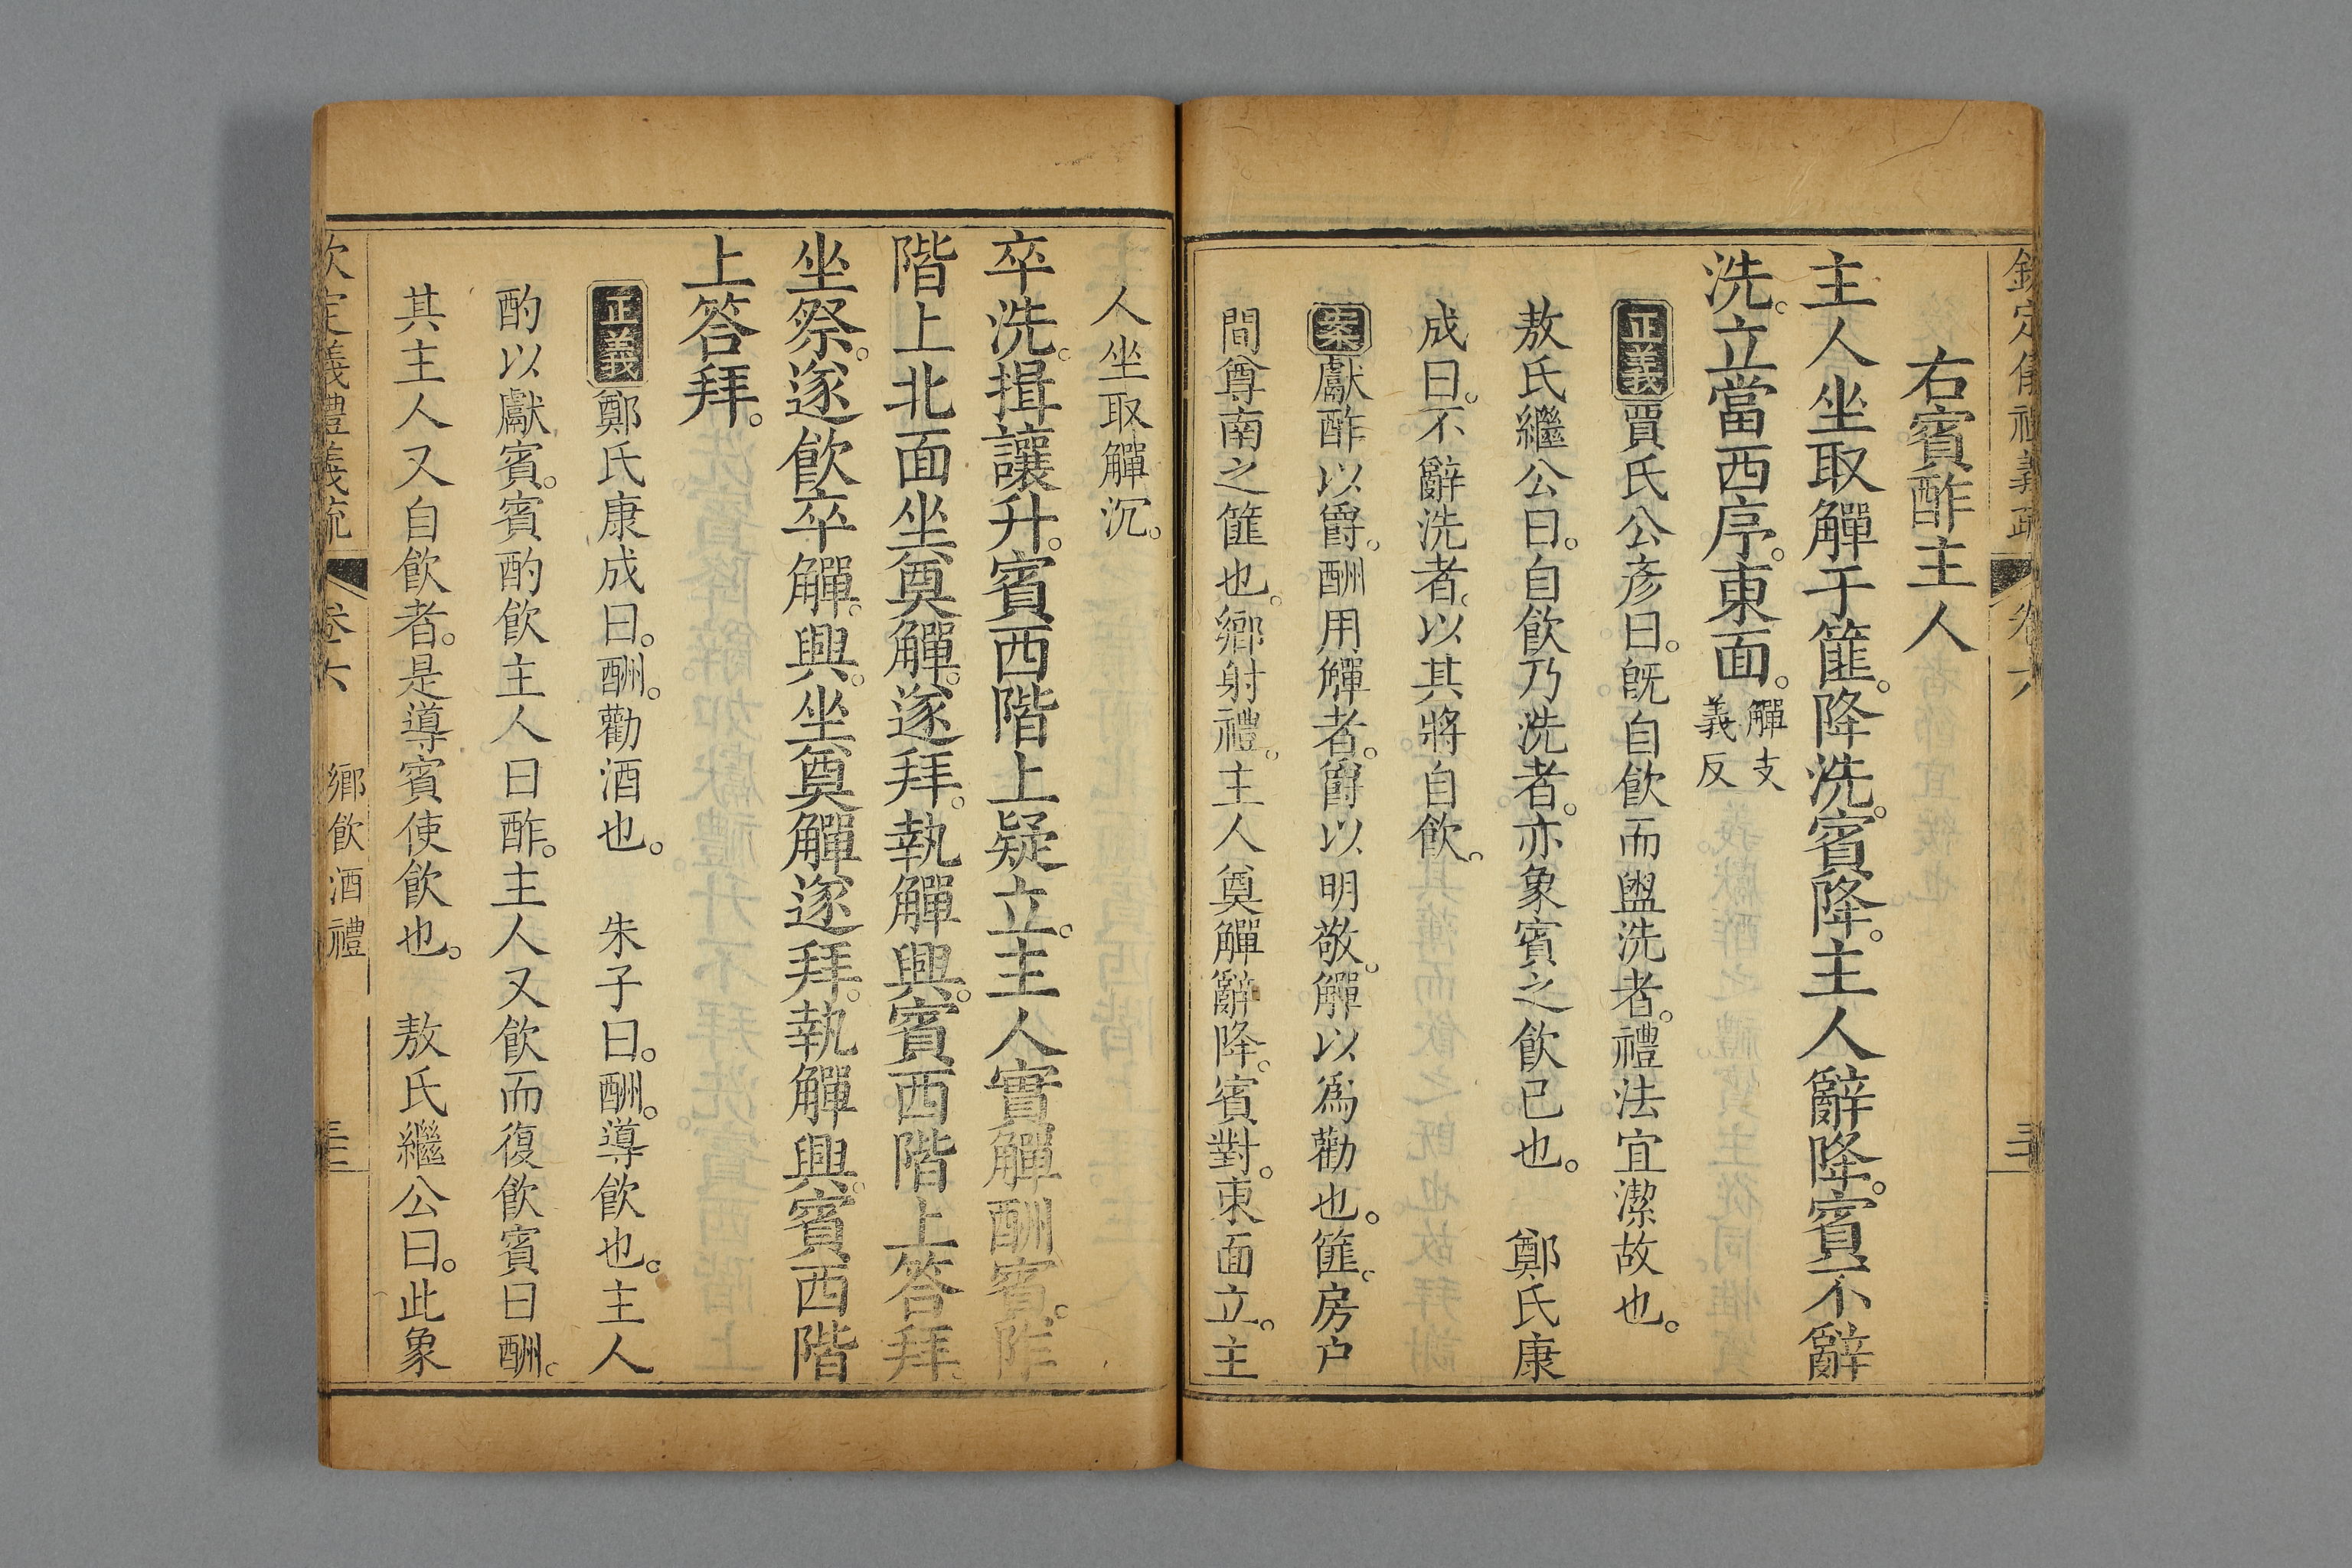 右賓酢主人
主人坐取觶于篚。降洗。賓降。主人辭降。賓不辭
洗。立當西序。東面。觶支義反
正義賈氏公彥曰。既自飲而盥洗者。禮法宜潔故也。
敖氏繼公曰。自飲乃洗者。亦象賓之飲已也。 鄭氏康
成曰。不辭洗者。以其將自飲。
案獻酢以爵。酬用觶者。爵以明敬。觶以為勸也。篚。房户
間尊南之篚也。鄉射禮。主人奠觶辭降。賓對。東面立。主
欽定儀禮義疏 卷六
人坐取觶洗。
卒洗。揖讓升。賓西階上疑立。主人實觶酬賓。阼
階上北面坐奠觶。遂拜。執觶興。賓西階上答拜。
坐祭。遂飲卒觶。興。坐奠觶遂拜。執觶興。賓西階
上答拜。
正義鄭氏康成曰。酬。勸酒也。 朱子曰。酬。導飲也。主人
酌以獻賓。賓酌飲主人曰酢。主人又飲而復飲賓曰酬。
其主人又自飲者。是導賓使飲也。 敖氏繼公曰。此象
欽定義禮義疏 卷六 鄉飲酒禮